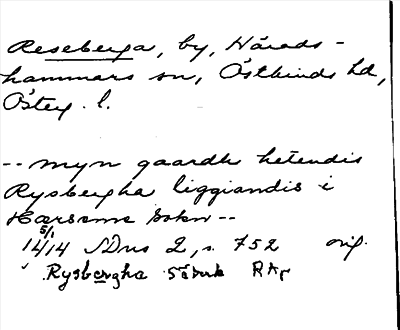 Reseberga, by, Härads-
hammars sn, Östkinds hd,
Österg. l.
-- myn gaardh hetendis
Rysbergha liggiandis i
Hærsems sokn --
5/1
1414 SDns 2, s. 752 orig.
Rysbergha RAp